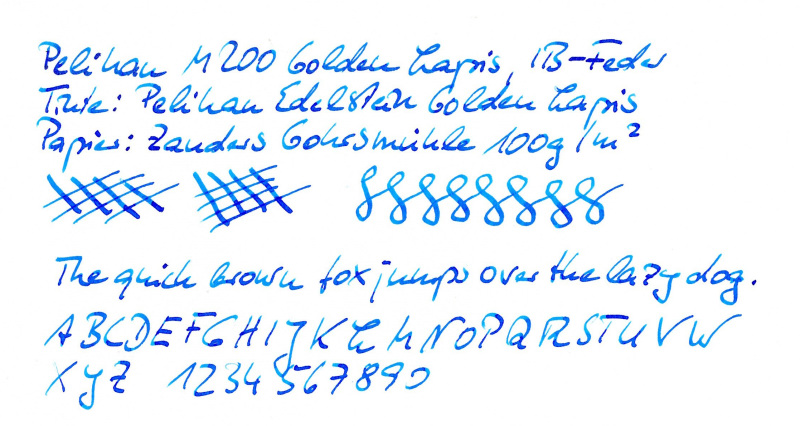 Pelikan M200 Golden Lapis, IB-Feder
Tinte: Pelikan Edelstein Golden Lapis
Papier: Zanders Gohrsmühle 100g/m²
The quick brown fox jumps over the lazy dog.
ABCDEFGHIJKLMNOPQRSTUVW
XYZ 1234567890